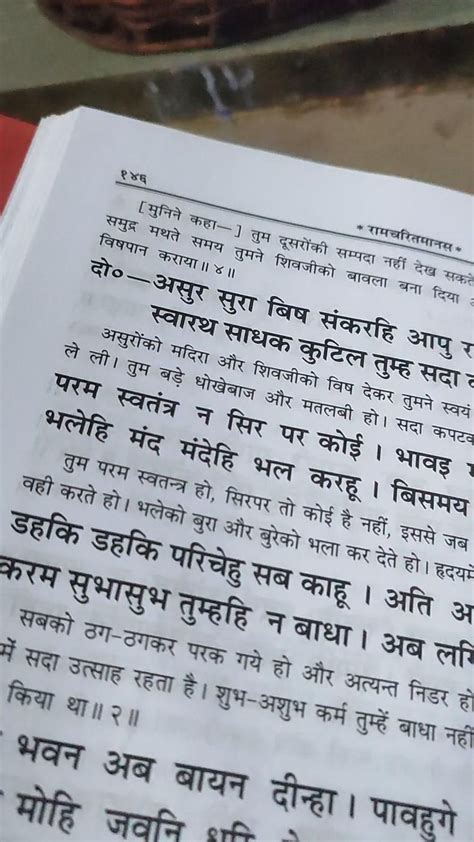 १४६
* रामचरितमानस *
[मुनिने कहा—] तुम दूसरोंकी सम्पदा नहीं देख सकते
समुद्र मथते समय तुमने शिवजीको बावला बना दिया
विषपान कराया॥ ४॥
दो०—असुर सुरा बिष संकरहि आपु
स्वारथ साधक कुटिल तुम्ह सदा
असुरोंको मदिरा और शिवजीको विष देकर तुमने स्वयं
ले ली। तुम बड़े धोखेबाज और मतलबी हो। सदा कपटका
परम स्वतंत्र न सिर पर कोई। भावइ
भलेहि मंद मंदेहि भल करहू। बिसमय
तुम परम स्वतन्त्र हो, सिरपर तो कोई है नहीं, इससे जब
वही करते हो। भलेको बुरा और बुरेको भला कर देते हो। हृदयमें
डहकि डहकि परिचेहु सब काहू। अति
करम सुभासुभ तुम्हहि न बाधा। अब लगि
सबको ठग-ठगकर परक गये हो और अत्यन्त निडर हो
में सदा उत्साह रहता है। शुभ-अशुभ कर्म तुम्हें बाधा नहीं
किया था॥ २॥
भवन अब बायन दीन्हा। पावहुगे
मोहि जवनि धरि